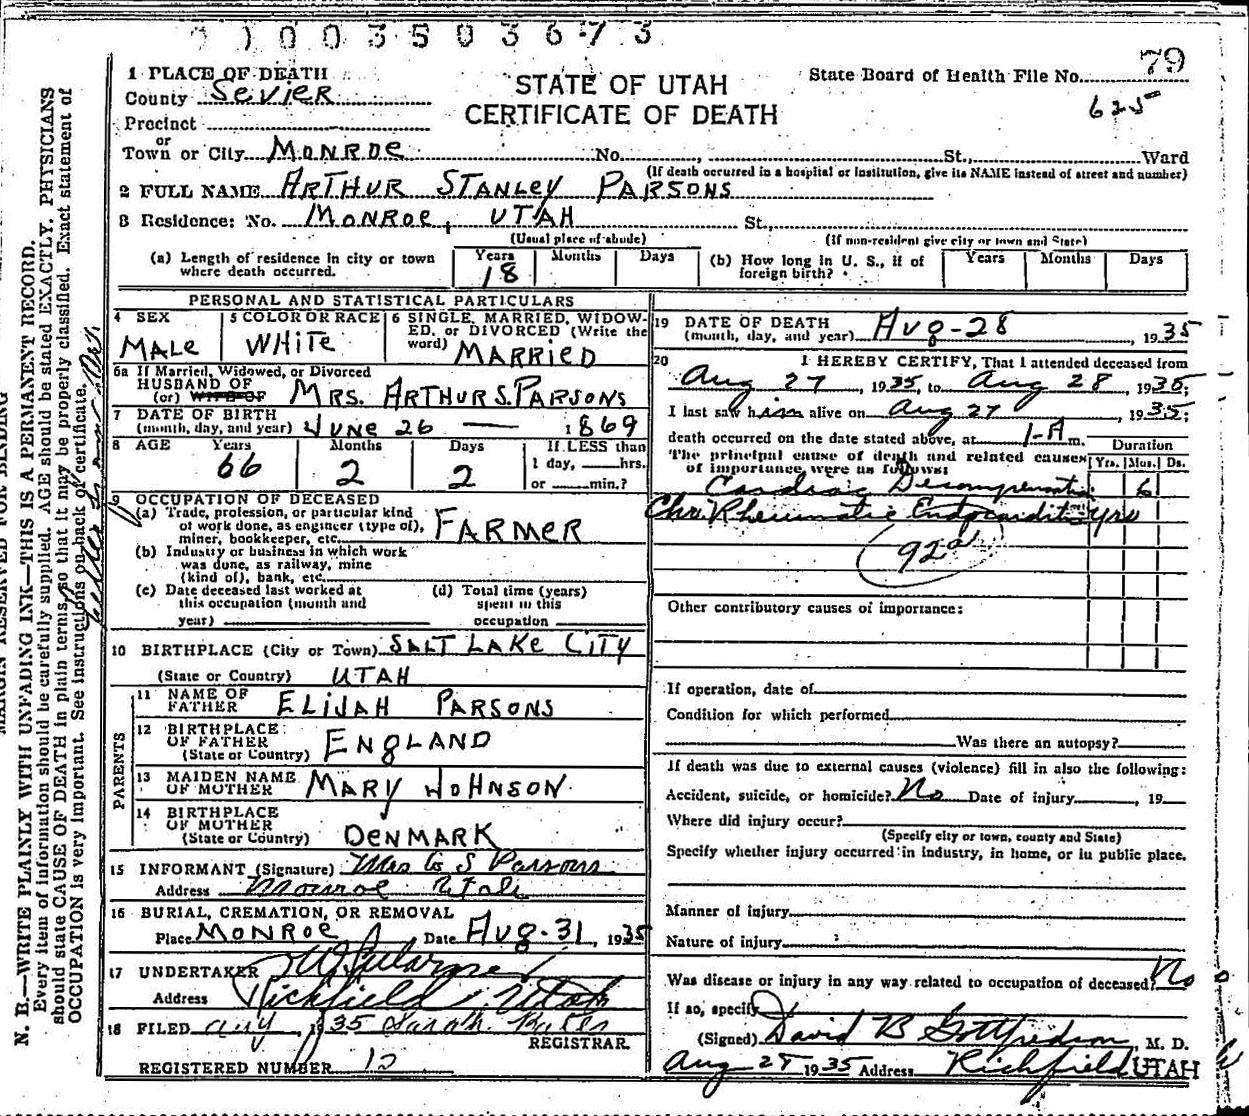 0100350 3673
79
1 PLACE OF DEATH
County Sevier
STATE OF UTAH
CERTIFICATE OF DEATH
State Board of Health File No.
625
Precinct
or
Town or City MONROE No. , St., Ward
(If death occurred in a hospital or institution, give its NAME instead of street and number)
2 FULL NAME ARTHUR STANLEY PARSONS
3 Residence: No. MONROE, UTAH St.,
(Usual place of abode) (If non-resident give city or town and State)
(a) Length of residence in city or town where death occurred. Years 18 Months Days
(b) How long in U. S., if of foreign birth? Years Months Days
PERSONAL AND STATISTICAL PARTICULARS
4 SEX MALE
5 COLOR OR RACE WHITE
6 SINGLE, MARRIED, WIDOW-
ED, or DIVORCED (Write the
word) MARRIED
6a If Married, Widowed, or Divorced
HUSBAND OF
(or) WIFE OF MRS. ARTHUR S. PARSONS
7 DATE OF BIRTH
(month, day, and year) JUNE 26 — 1869
8 AGE Years 66 Months 2 Days 2
If LESS than
1 day, hrs.
or min.?
9 OCCUPATION OF DECEASED
(a) Trade, profession, or particular kind
of work done, as engineer (type of),
miner, bookkeeper, etc. FARMER
(b) Industry or business in which work
was done, as railway, mine
(kind of), bank, etc.
(c) Date deceased last worked at
this occupation (month and
year)
(d) Total time (years)
spent in this
occupation
10 BIRTHPLACE (City or Town) SALT LAKE CITY
(State or Country) UTAH
PARENTS
11 NAME OF
FATHER ELIJAH PARSONS
12 BIRTHPLACE
OF FATHER
(State or Country) ENGLAND
13 MAIDEN NAME
OF MOTHER MARY JOHNSON
14 BIRTHPLACE
OF MOTHER
(State or Country) DENMARK
15 INFORMANT (Signature) Mrs S Parsons
Address Monroe Utah
16 BURIAL, CREMATION, OR REMOVAL
Place MONROE Date Aug. 31, 1935
17 UNDERTAKER
Address Richfield Utah
18 FILED Aug , 1935 Sarah
REGISTRAR
REGISTERED NUMBER 12
19 DATE OF DEATH
(month, day, and year) Aug-28, 1935
20 I HEREBY CERTIFY, That I attended deceased from
Aug 27, 1935, to Aug 28, 1935;
I last saw him alive on Aug 27, 1935;
death occurred on the date stated above, at 1-A m.
The principal cause of death and related causes
of importance were as follows:
Duration
Yrs. Mos. Ds.
Cardiac Decompensation 6
Chr. Rheumatic Endocarditis yrs
92a
Other contributory causes of importance:
If operation, date of
Condition for which performed
Was there an autopsy?
If death was due to external causes (violence) fill in also the following:
Accident, suicide, or homicide? No Date of injury , 19
Where did injury occur?
(Specify city or town, county and State)
Specify whether injury occurred in industry, in home, or in public place.
Manner of injury
Nature of injury
Was disease or injury in any way related to occupation of deceased? No
If so, specify
(Signed) David B Gottfredson, M. D.
Aug 28 1935 Address Richfield UTAH
N. B.—WRITE PLAINLY WITH UNFADING INK—THIS IS A PERMANENT RECORD.
Every item of information should be carefully supplied. AGE should be stated EXACTLY. PHYSICIANS
should state CAUSE OF DEATH in plain terms, so that it may be properly classified. Exact statement of
OCCUPATION is very important. See instructions on back of certificate.